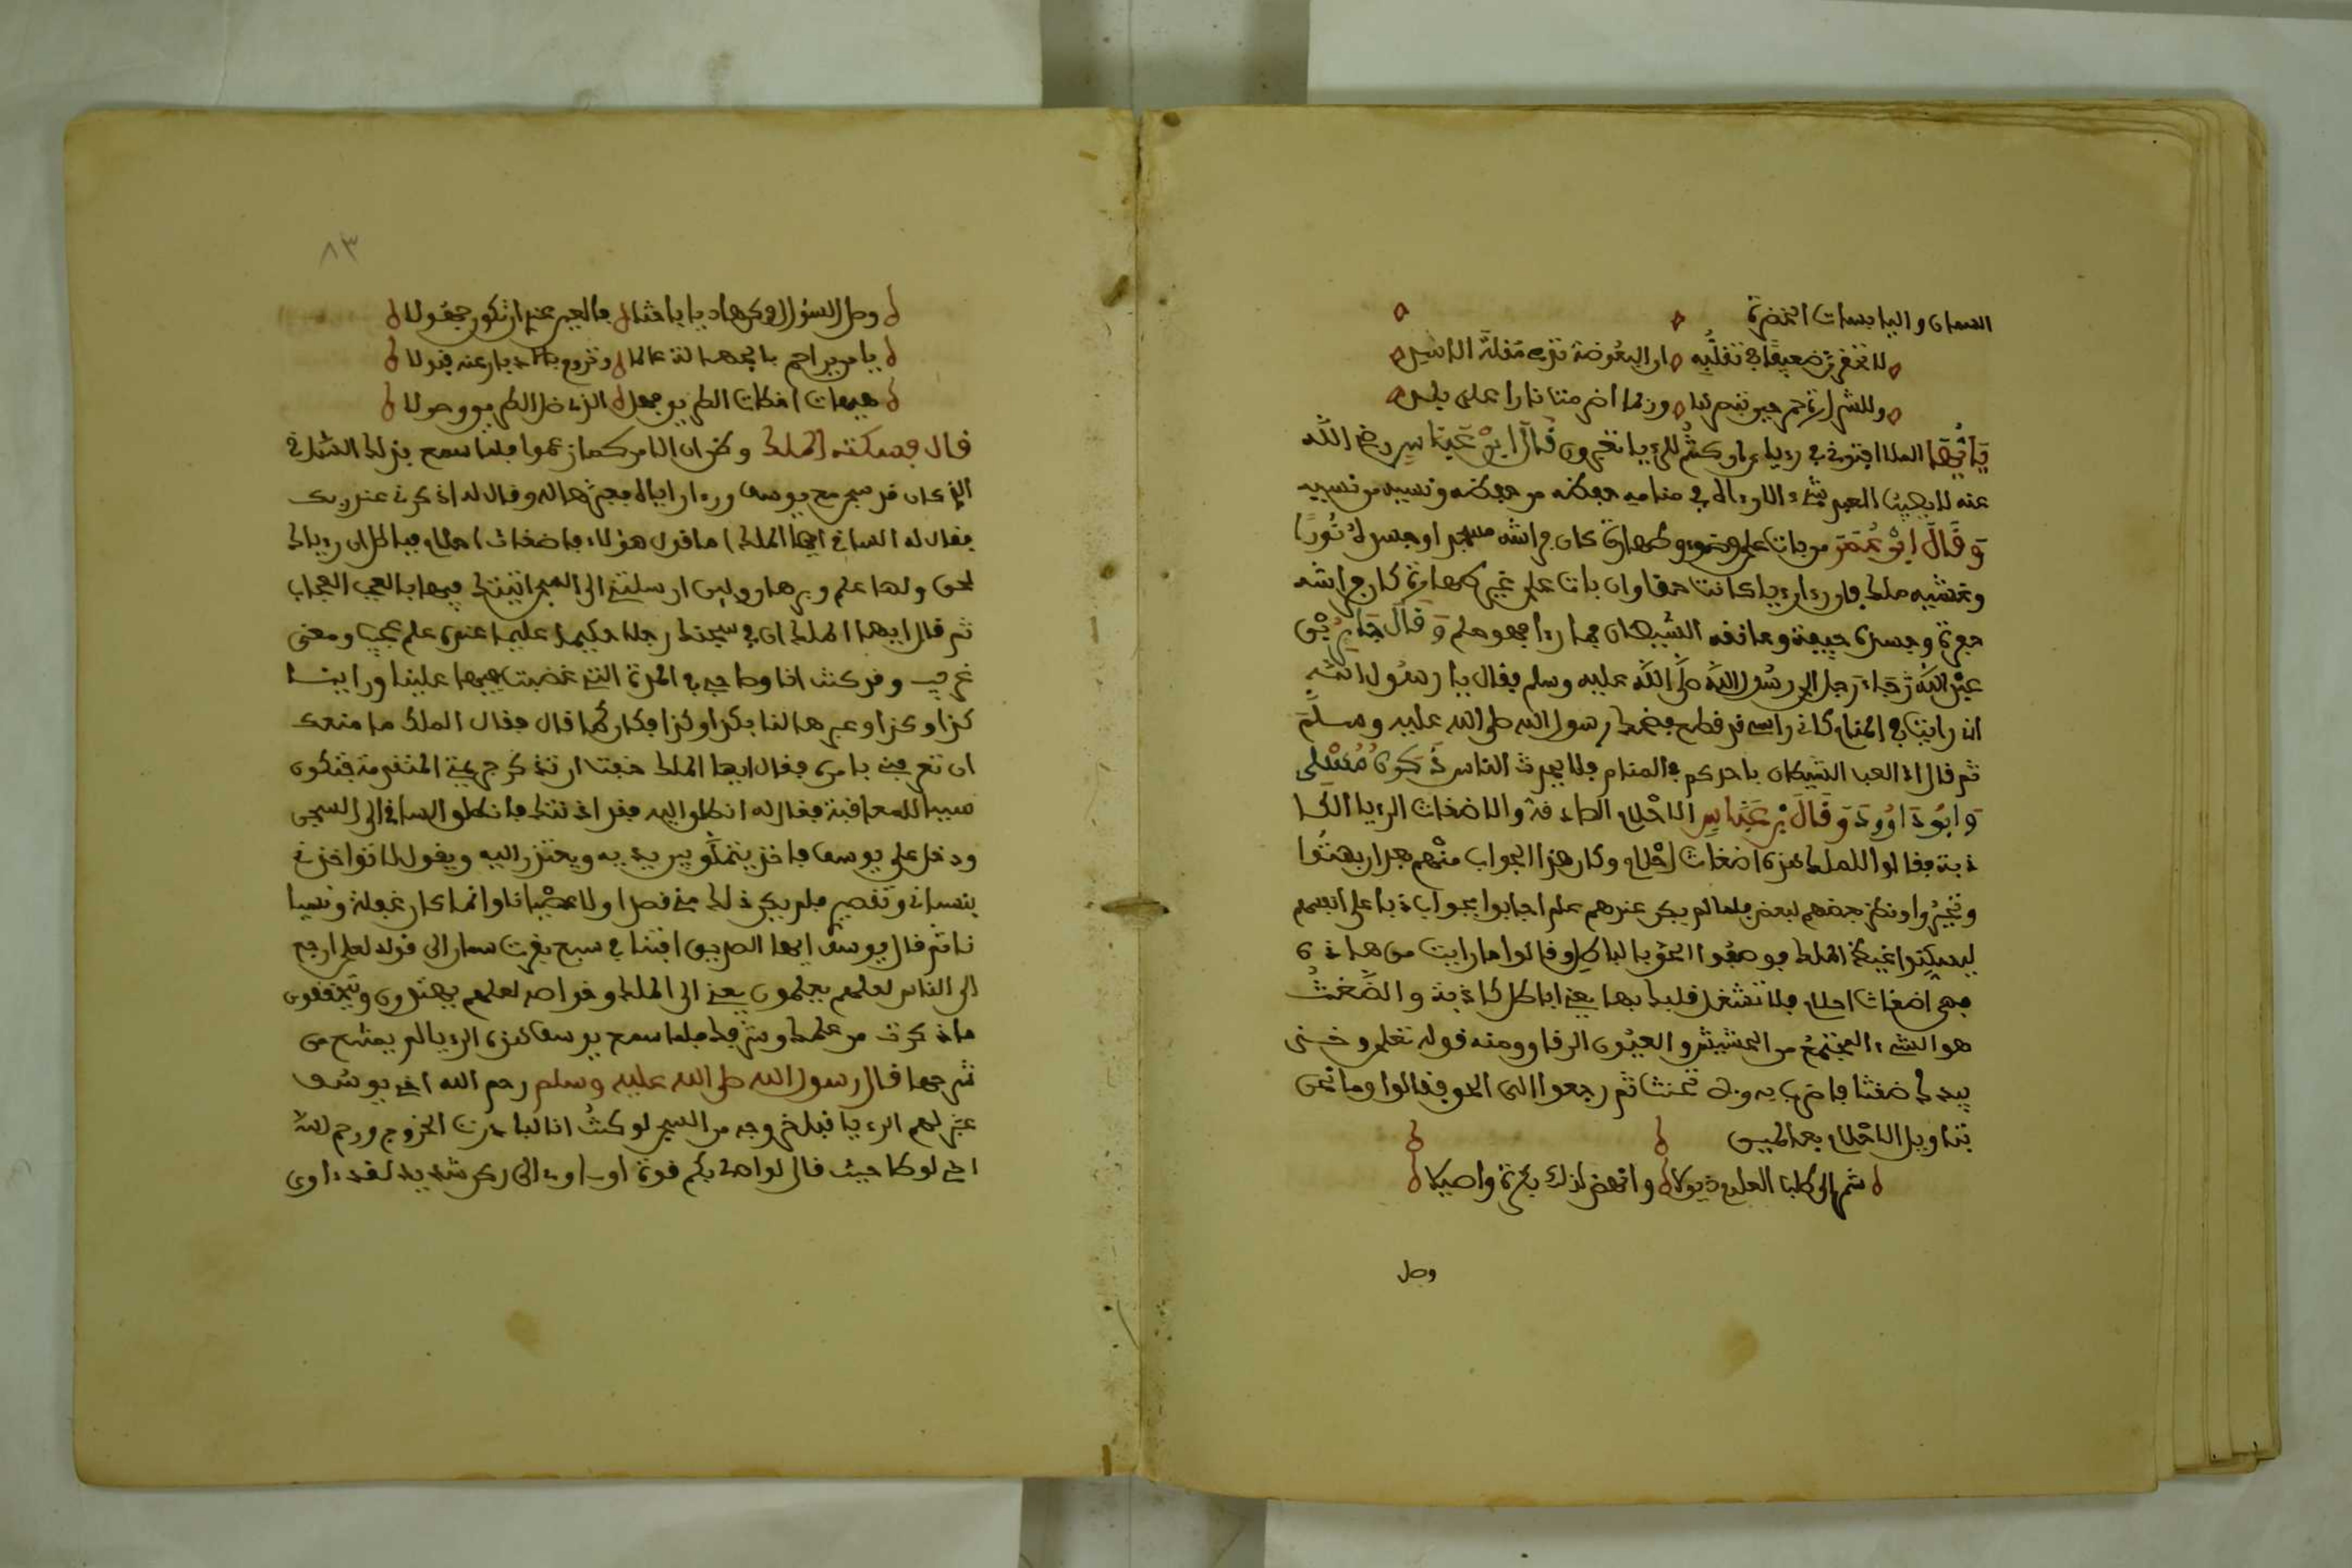 السمان واليابسات الخضرة
لا تحقرن ضعيفا في تقلبه ان البعوضة تدمي مقلة الاسد
وللشرارة حين تبصرها وربما اضرمت نارا على بلد
يَا أَيُّهَا الملا افتوني في رءياي ان كنتم للرءيا تعبرون قَالَ ابْن عَبَّاس رضي الله
عنه لا يصيب العبد شيء الا رءاه في منامه حفظه من حفظه ونسيه من نسيه
وَقَالَ ابْن عُمَر من بات على وضوء وطهارة كان فراشه مسجدا وجسده نُورًا
وتغشيه ملك فان رءا رءيا كانت حقا وان بات على غير طهارة كان فراشه
حفرة وجسده جيفة وعانفه الشيطان فما رءا فهو حلم وَقَالَ جَابِر بْن
عبد الله جَاءَ رجل الى رسُول اللَّه صلى الله عليه وسلم فقال يا رسُول الله
اني رايت في المنام كان راسي قد قطع فضحك رسول الله صلى الله عليه وسلم
ثم قال اذا لعب الشيطان باحدكم في المنام فلا يحدث الناس ذَكَرَهُ مُسْلِم
وَابُو دَاوُودَ وَقَالَ بْن عَبَّاس الاحْلام الصادقة والاضغاث الرءيا الكا
ذبة فقالوا للملك هذه اضغاث احْلام وكان هذا الجواب منْهم بعد ان بهتُوا
وتحيَّروا ونظر بعضهم لبعض فلما لم يكن عندهم علم اجابوا بجواب ذبا على انفسهم
ليسكنوا غيظ الملك فوصفُوا الحق بالباطل وقالوا ما رايت من هاذه
فهي اضغاث احلام فلا تشغل قلبك بها يعني اباطل كاذبة والضِّغثُ
هو الشيء المجتمعُ من الحشيش والعيُون الرقاو ومنه قوله تعلى وخذ
بيدك ضغثا فاضرب به ولا تحنث ثم رجعوا الى الحق فقالوا وما نحن
بتاويل الاحْلام بعالمين
شمر الى طلب العلوم ذيولا وانهض لذلك بكرة واصيلا
وصل
٨٣
وصل السؤال وكن هاديا باحثا فالعيب عندي ان تكون جهولا
هيهات
قال فسكته الملك وظن ان الامر كما زعموا فلما سمع بذلك الساقي
الذي كان قد سجن مع يوسف ورءا رءياه فعبرها له وقال له اذكرني عند ربك
فقال له الساقي ايها الملك اما قول هؤلاء باضغاث احلام فباطل ان رءياك
لحق ولها علم وبرهان ولين ارسلتني الى السجن انبئتك فيها بالعجب العجاب
ثم قال ايها الملك ان في سجنك رجلا حكيما عليما عنده علم عجيب ومعنى
غريب وقد كنت انا وصاحبي في المرة التي غضبت فيها علينا وراينا
كذا وكذا وعبرها لنا بكذا وكذا فكان كما قال فقال الملك ما منعك
ان تعرفني بامره فقال ايها الملك خفت ان تذكر جريمتي المتقدمة فتكون
سببا للمعاقبة فقال له انطلق اليه فقد اذنتك فانطلق الساقي الى السجن
ودخل على يوسف فاخذ يتملَّق بين يديه ويعتذر اليه ويقول لا تواخذني
بنساني وتقصير فلم يكن ذلك مني قصدا ولا عصْيانا وانما كان غفلة ونسيا
نا ثم قال يوسُف ايها الصديق افتنا في سبع بقرت سمان الى قوله لعلي ارجع
الى الناس لعلهم يعلمون يعني الى الملك وخواصه لعلهم يهتدون ويتحققون
ما ذكرت من علمك وشرفك فلما سمع يوسف هذه الرءيا لم يمتنع من
شرحها قال رسول الله صلى الله عليه وسلم رحم الله اخي يوسُف
عبَّر لهم الرءيا قبل خروجه من السجن لو كنتُ انا لبادرت الخروج ورحم الله
اخي لوطا حيث قال لو ان لي بكم قوة او ءاوي الى ركن شديد لقد ءاوى